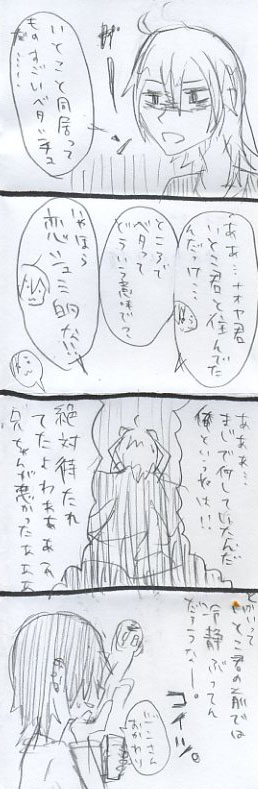 いとこと同居って
ものすごいベタッチュ
……
ああ…ナオヤ君
いとこ君と住んでた
んだっけ…
ところで
ベタって
どういう意味で？
いやほら
恋シュミ的な!!
あああ…
まじで何していたんだ
俺というやつは!!
絶対待たれ
てたよわぁぁぁぁ
兄ちゃんが悪かったぁぁぁ
とかいって
いとこ君の前では
冷静ぶってん
だろうなー。
コイツ。
おかわり